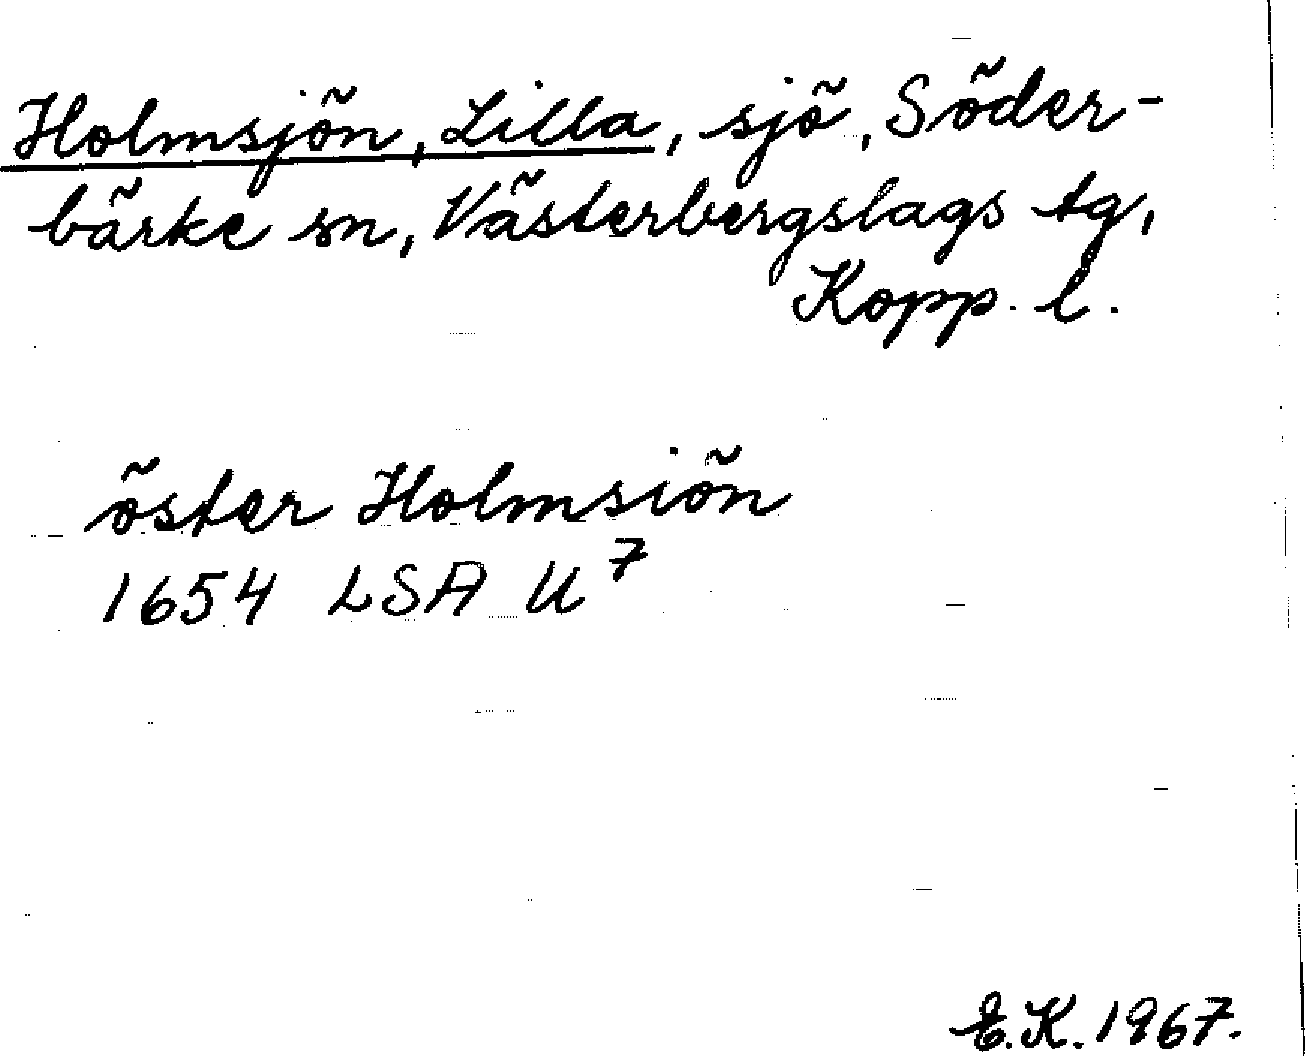 Holmsjön, Lilla, sjö, Söder-
bärke sn, Västerbergslags tg,
Kopp. l.
öster Holmsiön
1654 LSA U⁷
E.K. 1967.